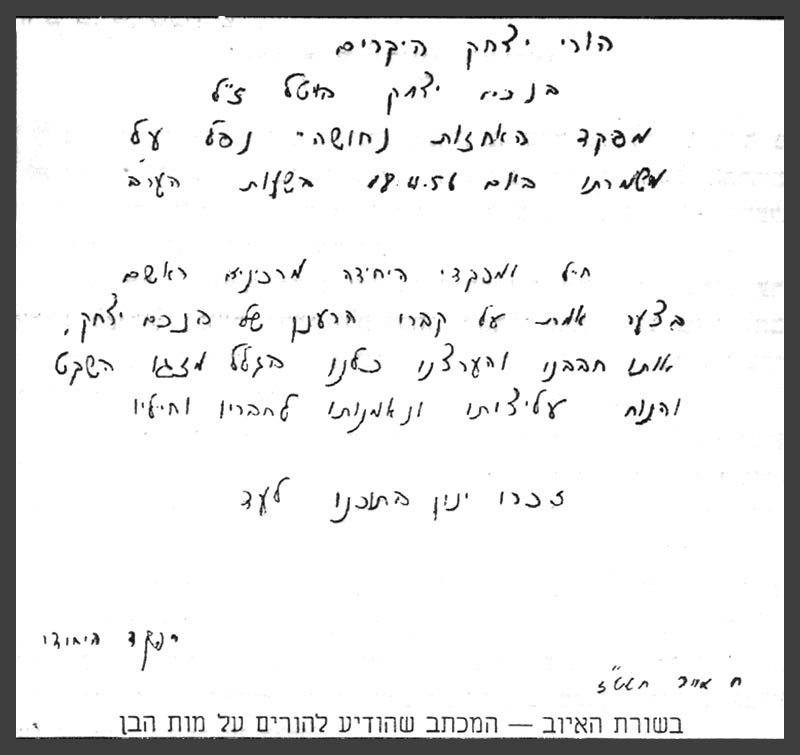 הורי יצחק היקרים
בנכם יצחק הויטל ז"ל
מפקד האחזות נחושה" נפל על
משמרתו ביום 18.4.56 בשעות הערב
חיל ומפקדי היחידה מרכינים ראשם
בצער אמת על קברו הרענן של בנכם יצחק,
אותו חבבנו והערצנו כלנו בגלל מזגו השקט
והנוח עליצותו ונאמנותו לחבריו וחייליו
זכרו ינון בתוכנו לעד
מפקד היחידה
ח אייר תשט"ז
בשורת האיוב — המכתב שהודיע להורים על מות הבן